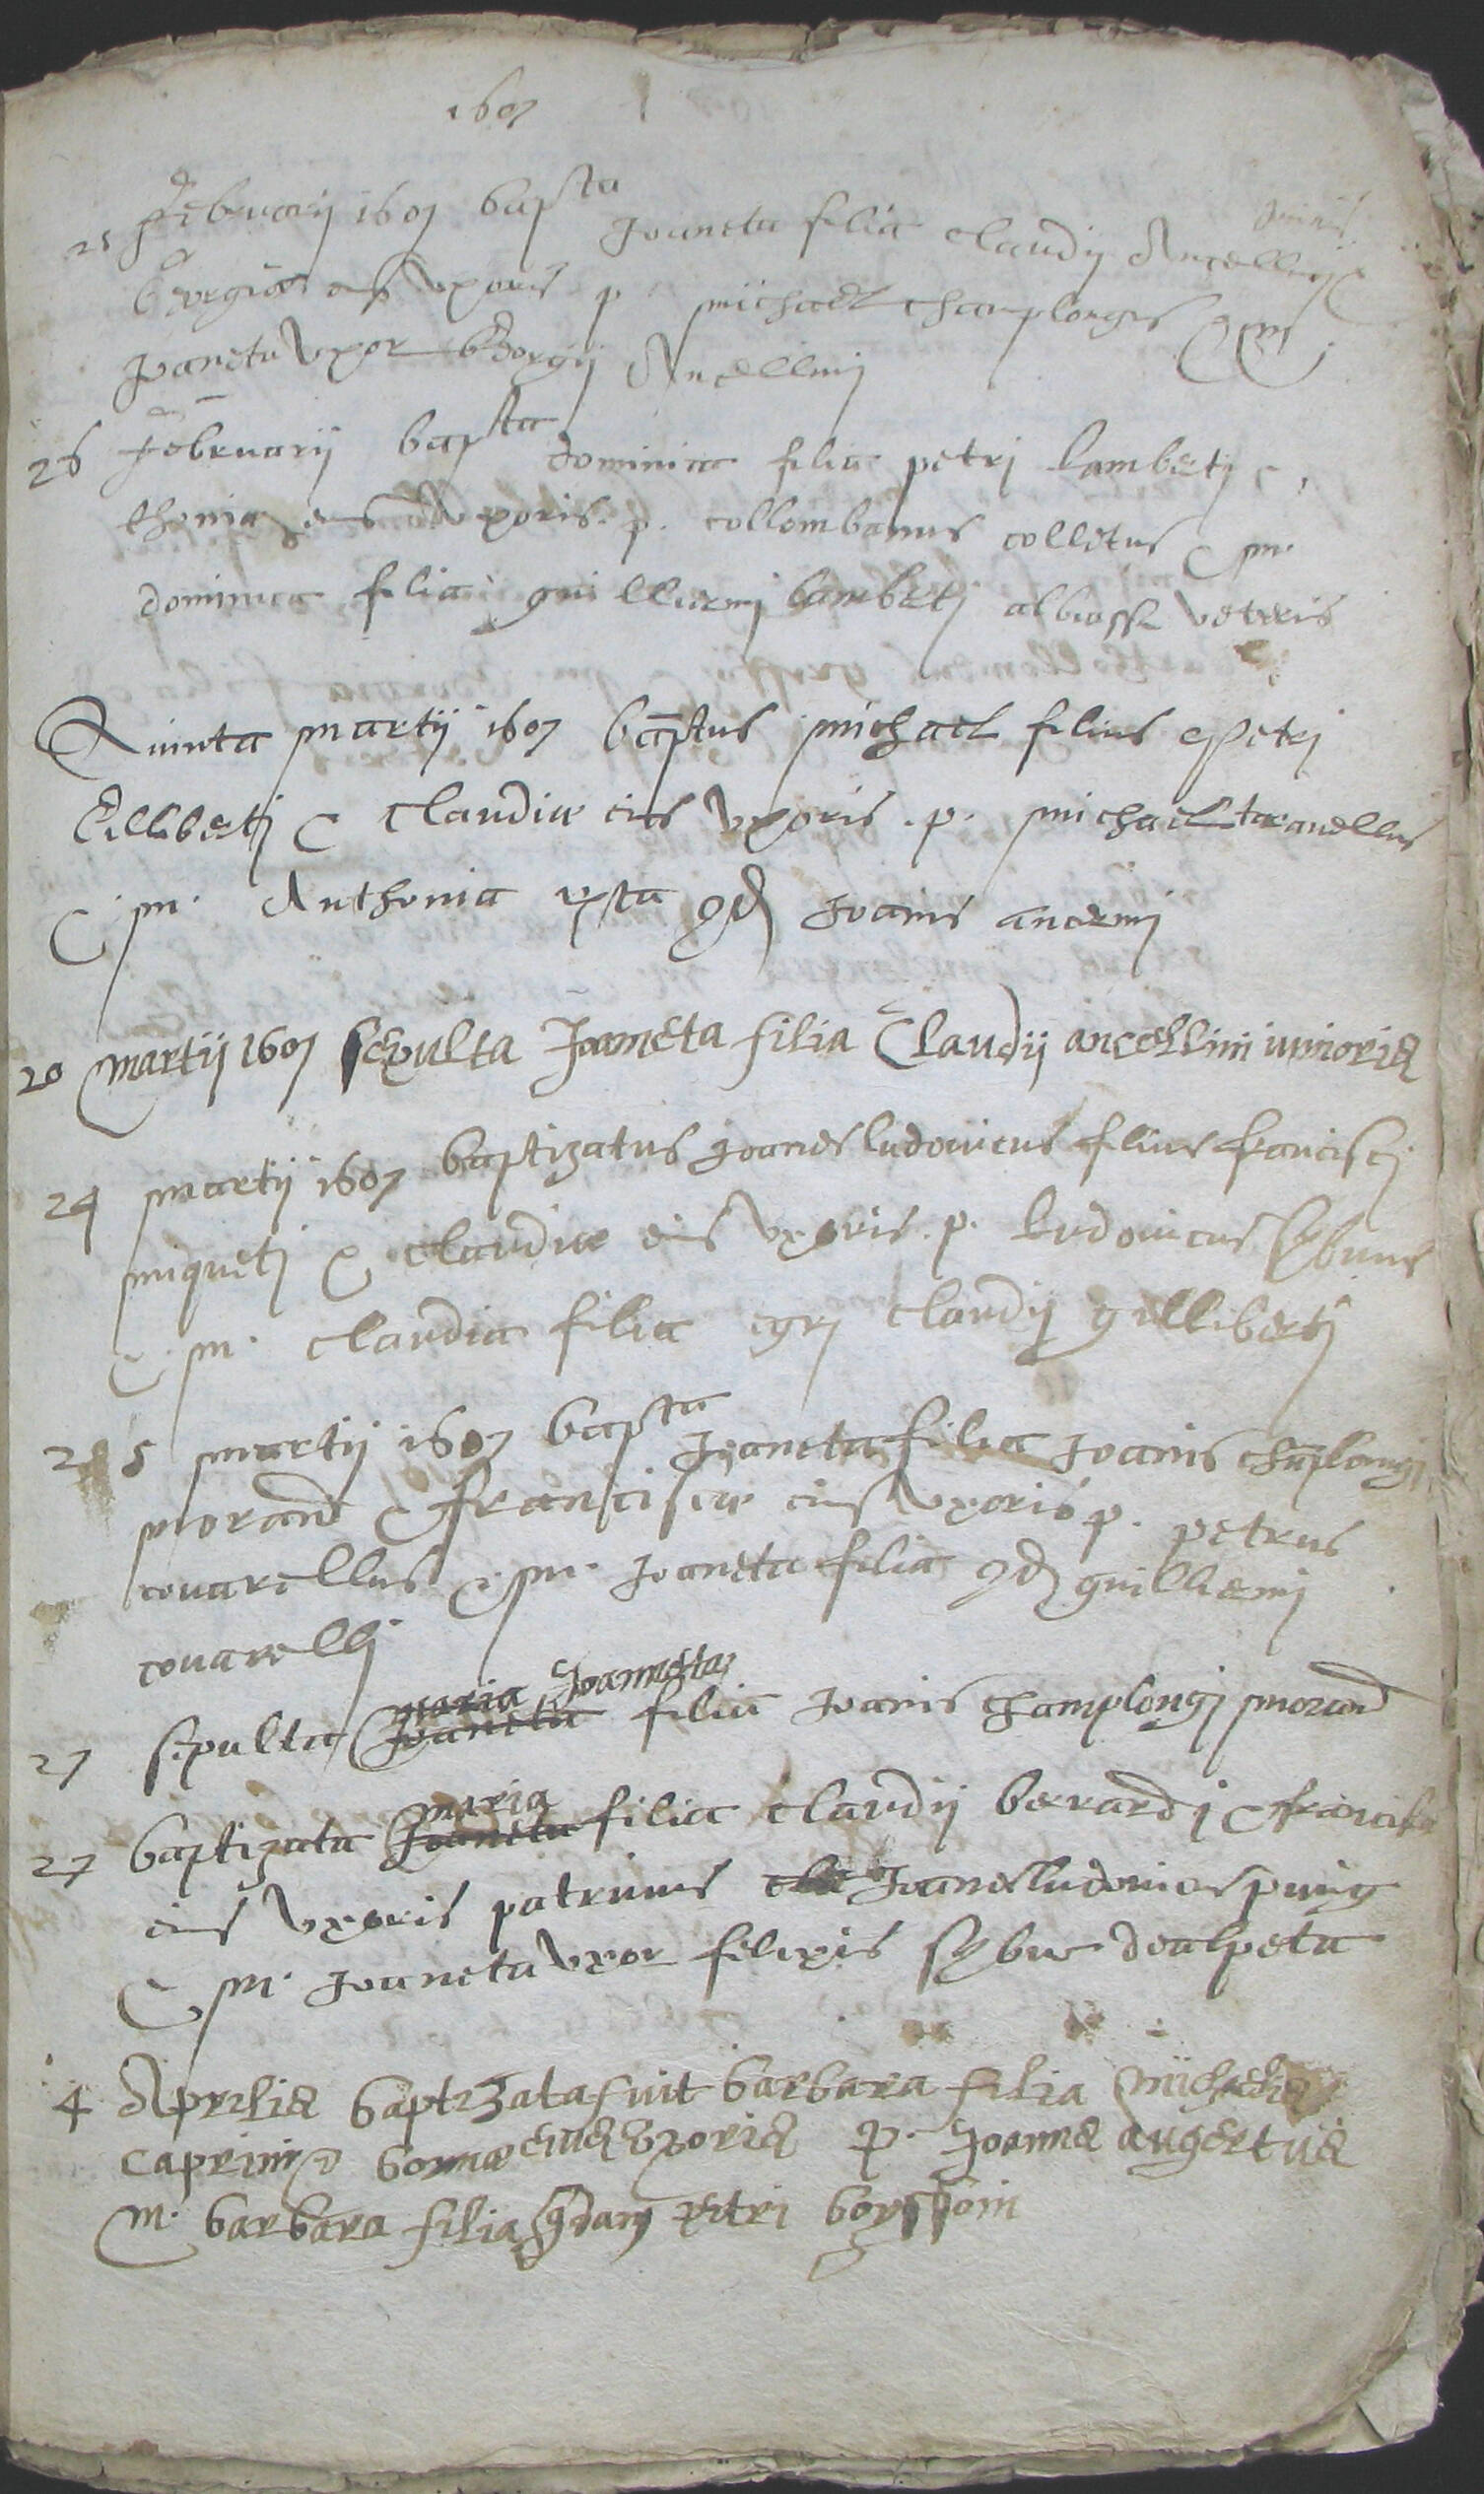 1607
25 februarij 1607 bapta Joaneta filia claudij Ancellinj
junioris
Georgiae eius uxoris p michael champlongus &
Joaneta uxor Georgij Ancellinj
26 februarij bapta dominica filia petrj Lambertj &
thoniae eius uxoris. p. collombanus colletus & m.
dominica filia guillermj Lambertj albiasse veteris
Quinta martij 1607 baptus michael filius petrj
Gillibertj & claudiae eius uxoris. p. michael tranellus
& m. Anthonia rexta qd Joanis anermj
20 martij 1607 sepulta Joaneta filia Claudij ancellinii iunioris
24 martij 1607 baptizatus Joanes ludovicus filius franciscj
miquetj & claudiae eius uxoris. p. Ludovicus Sybue
& m. claudia filia egrj claudij gillibertj
25 martij 1607 bapta Joaneta filia Joanis chaplongj
morand & franciscae eius uxoris p. petrus
covarellus & m. Joaneta filia qd guillermj
covarellj
27 sepulta Joaneta maria Joanneta filia Joanis champlongj morand
27 baptizata Joaneta maria filia claudij berardj & francisca
eius uxoris patrinus cla Joanes ludovicus puig
& m. Joaneta uxor felixis sybue dealpeta
4 Aprilis baptizata fuit barbara filia michaelis
caprini & bonnae eius uxoris p. Joannes augertus
m. barbara filia qdam petri borssoin